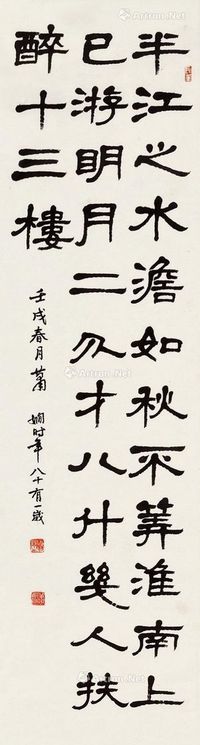 半江之水澹如秋不筭淮南上
已游眀月二分才八斗幾人扶
醉十三樓
壬戌春月蕭嫻时年八十有一歲